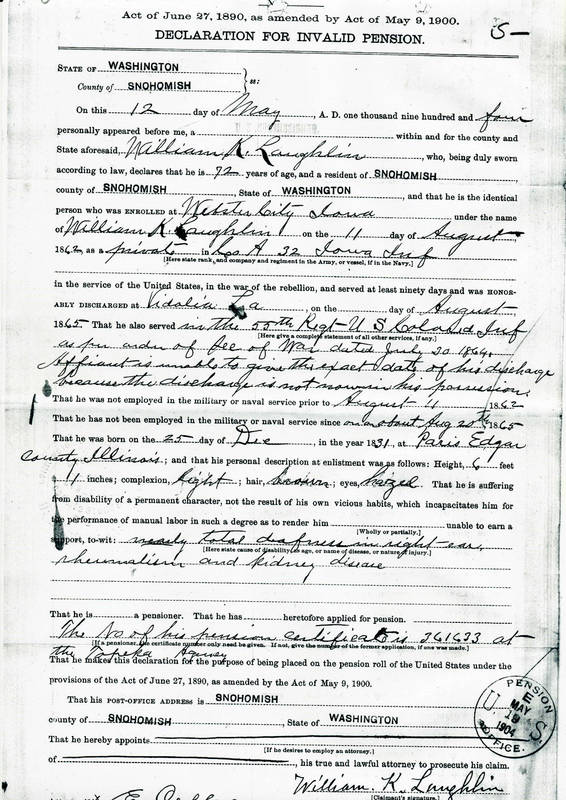 Act of June 27, 1890, as amended by Act of May 9, 1900.
DECLARATION FOR INVALID PENSION.
5-
STATE OF WASHINGTON
County of SNOHOMISH } ss:
On this 12 day of May, A. D. one thousand nine hundred and four
personally appeared before me, a within and for the county and
State aforesaid, William K. Laughlin, who, being duly sworn
according to law, declares that he is 72 years of age, and a resident of SNOHOMISH
county of SNOHOMISH, State of WASHINGTON, and that he is the identical
person who was ENROLLED at Webster City Iowa under the name
of William K. Laughlin on the 11 day of August,
1862, as a private in Co A 32 Iowa Inf
[Here state rank, and company and regiment in the Army, or vessel, if in the Navy.]
in the service of the United States, in the war of the rebellion, and served at least ninety days and was HONOR-
ABLY DISCHARGED at Vidalia La, on the day of August,
1865 That he also served in the 55th Regt U S Colored Inf
[Here give a complete statement of all other services, if any.]
as per order of Sec of War dated July 30 1864.
Affiant is unable to give the exact date of his discharge
because the discharge is not now in his possession.
That he was not employed in the military or naval service prior to August 11 1862
That he has not been employed in the military or naval service since on or about Aug 20th 1865
That he was born on the 25 day of Dec, in the year 1831, at Paris Edgar
County Illinois; and that his personal description at enlistment was as follows: Height, 6 feet
11 inches; complexion, light; hair, brown; eyes, hazel. That he is suffering
from disability of a permanent character, not the result of his own vicious habits, which incapacitates him for
the performance of manual labor in such a degree as to render him unable to earn a
[Wholly or partially.]
support, to-wit: nearly total deafness in right ear,
[Here state cause of disability, as age, or name of disease, or nature of injury.]
rheumatism and kidney disease
That he is a pensioner. That he has heretofore applied for pension.
The No of his pension certificate is 361633 at
[If a pensioner, the certificate number only need be given. If not, give the number of the former application, if one was made.]
the Topeka Agency
That he makes this declaration for the purpose of being placed on the pension roll of the United States under the
provisions of the Act of June 27, 1890, as amended by Act of May 9, 1900.
That his POST-OFFICE ADDRESS is SNOHOMISH
county of SNOHOMISH, State of WASHINGTON
That he hereby appoints
[If he desires to employ an attorney.]
of , his true and lawful attorney to prosecute his claim.
William K. Laughlin
[Claimant's signature.]
U. S. PENSION OFFICE. MAY 19 1904